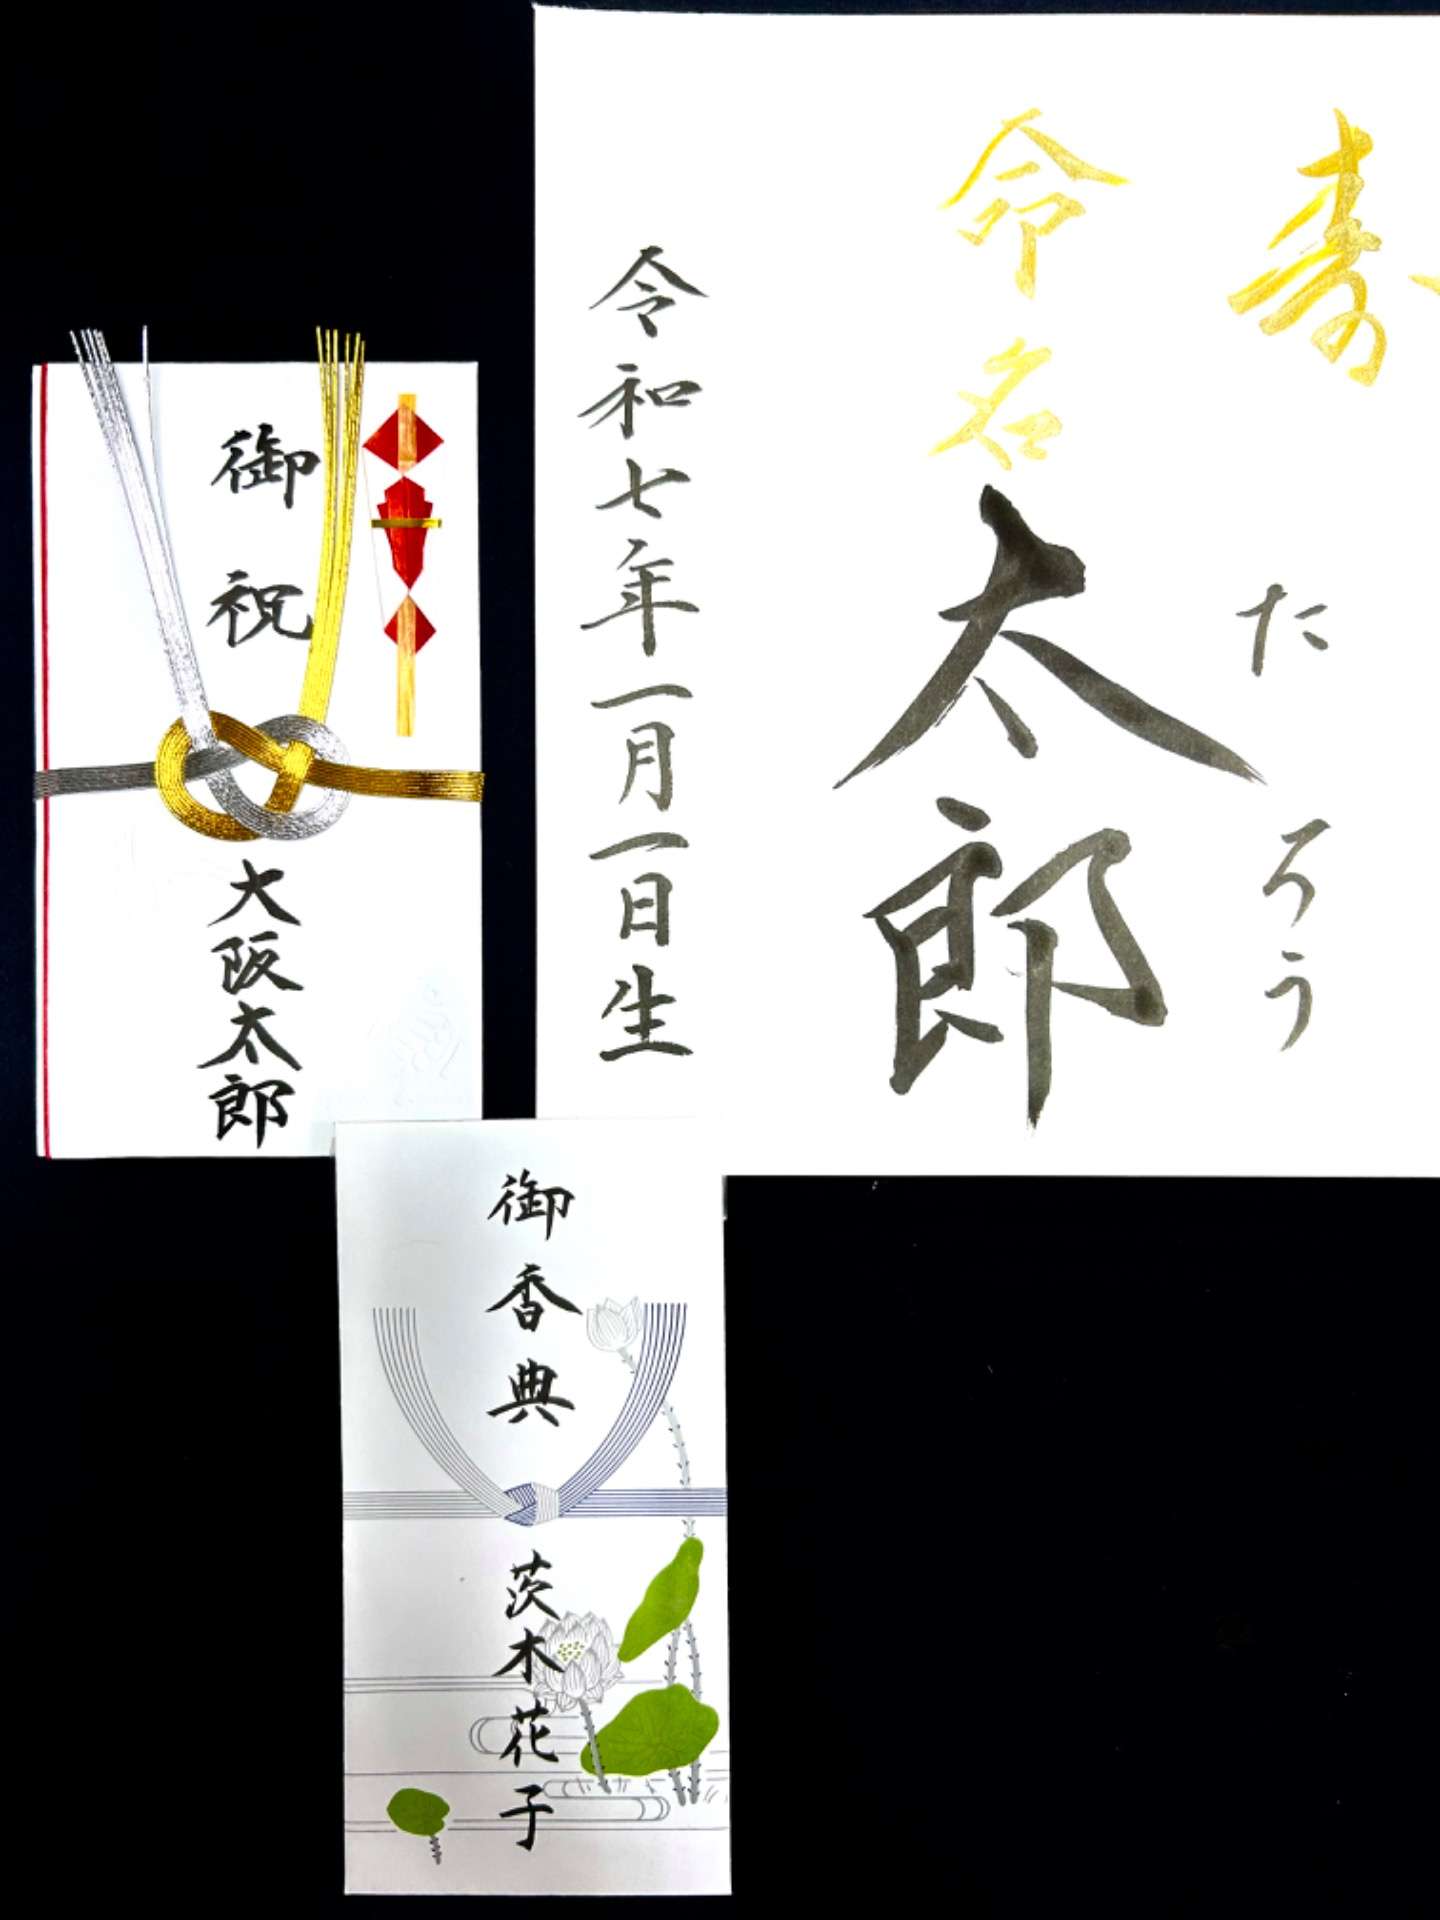 寿
命名
太郎
たろう
令和七年一月一日生
御祝
大阪太郎
御香典
茨木花子